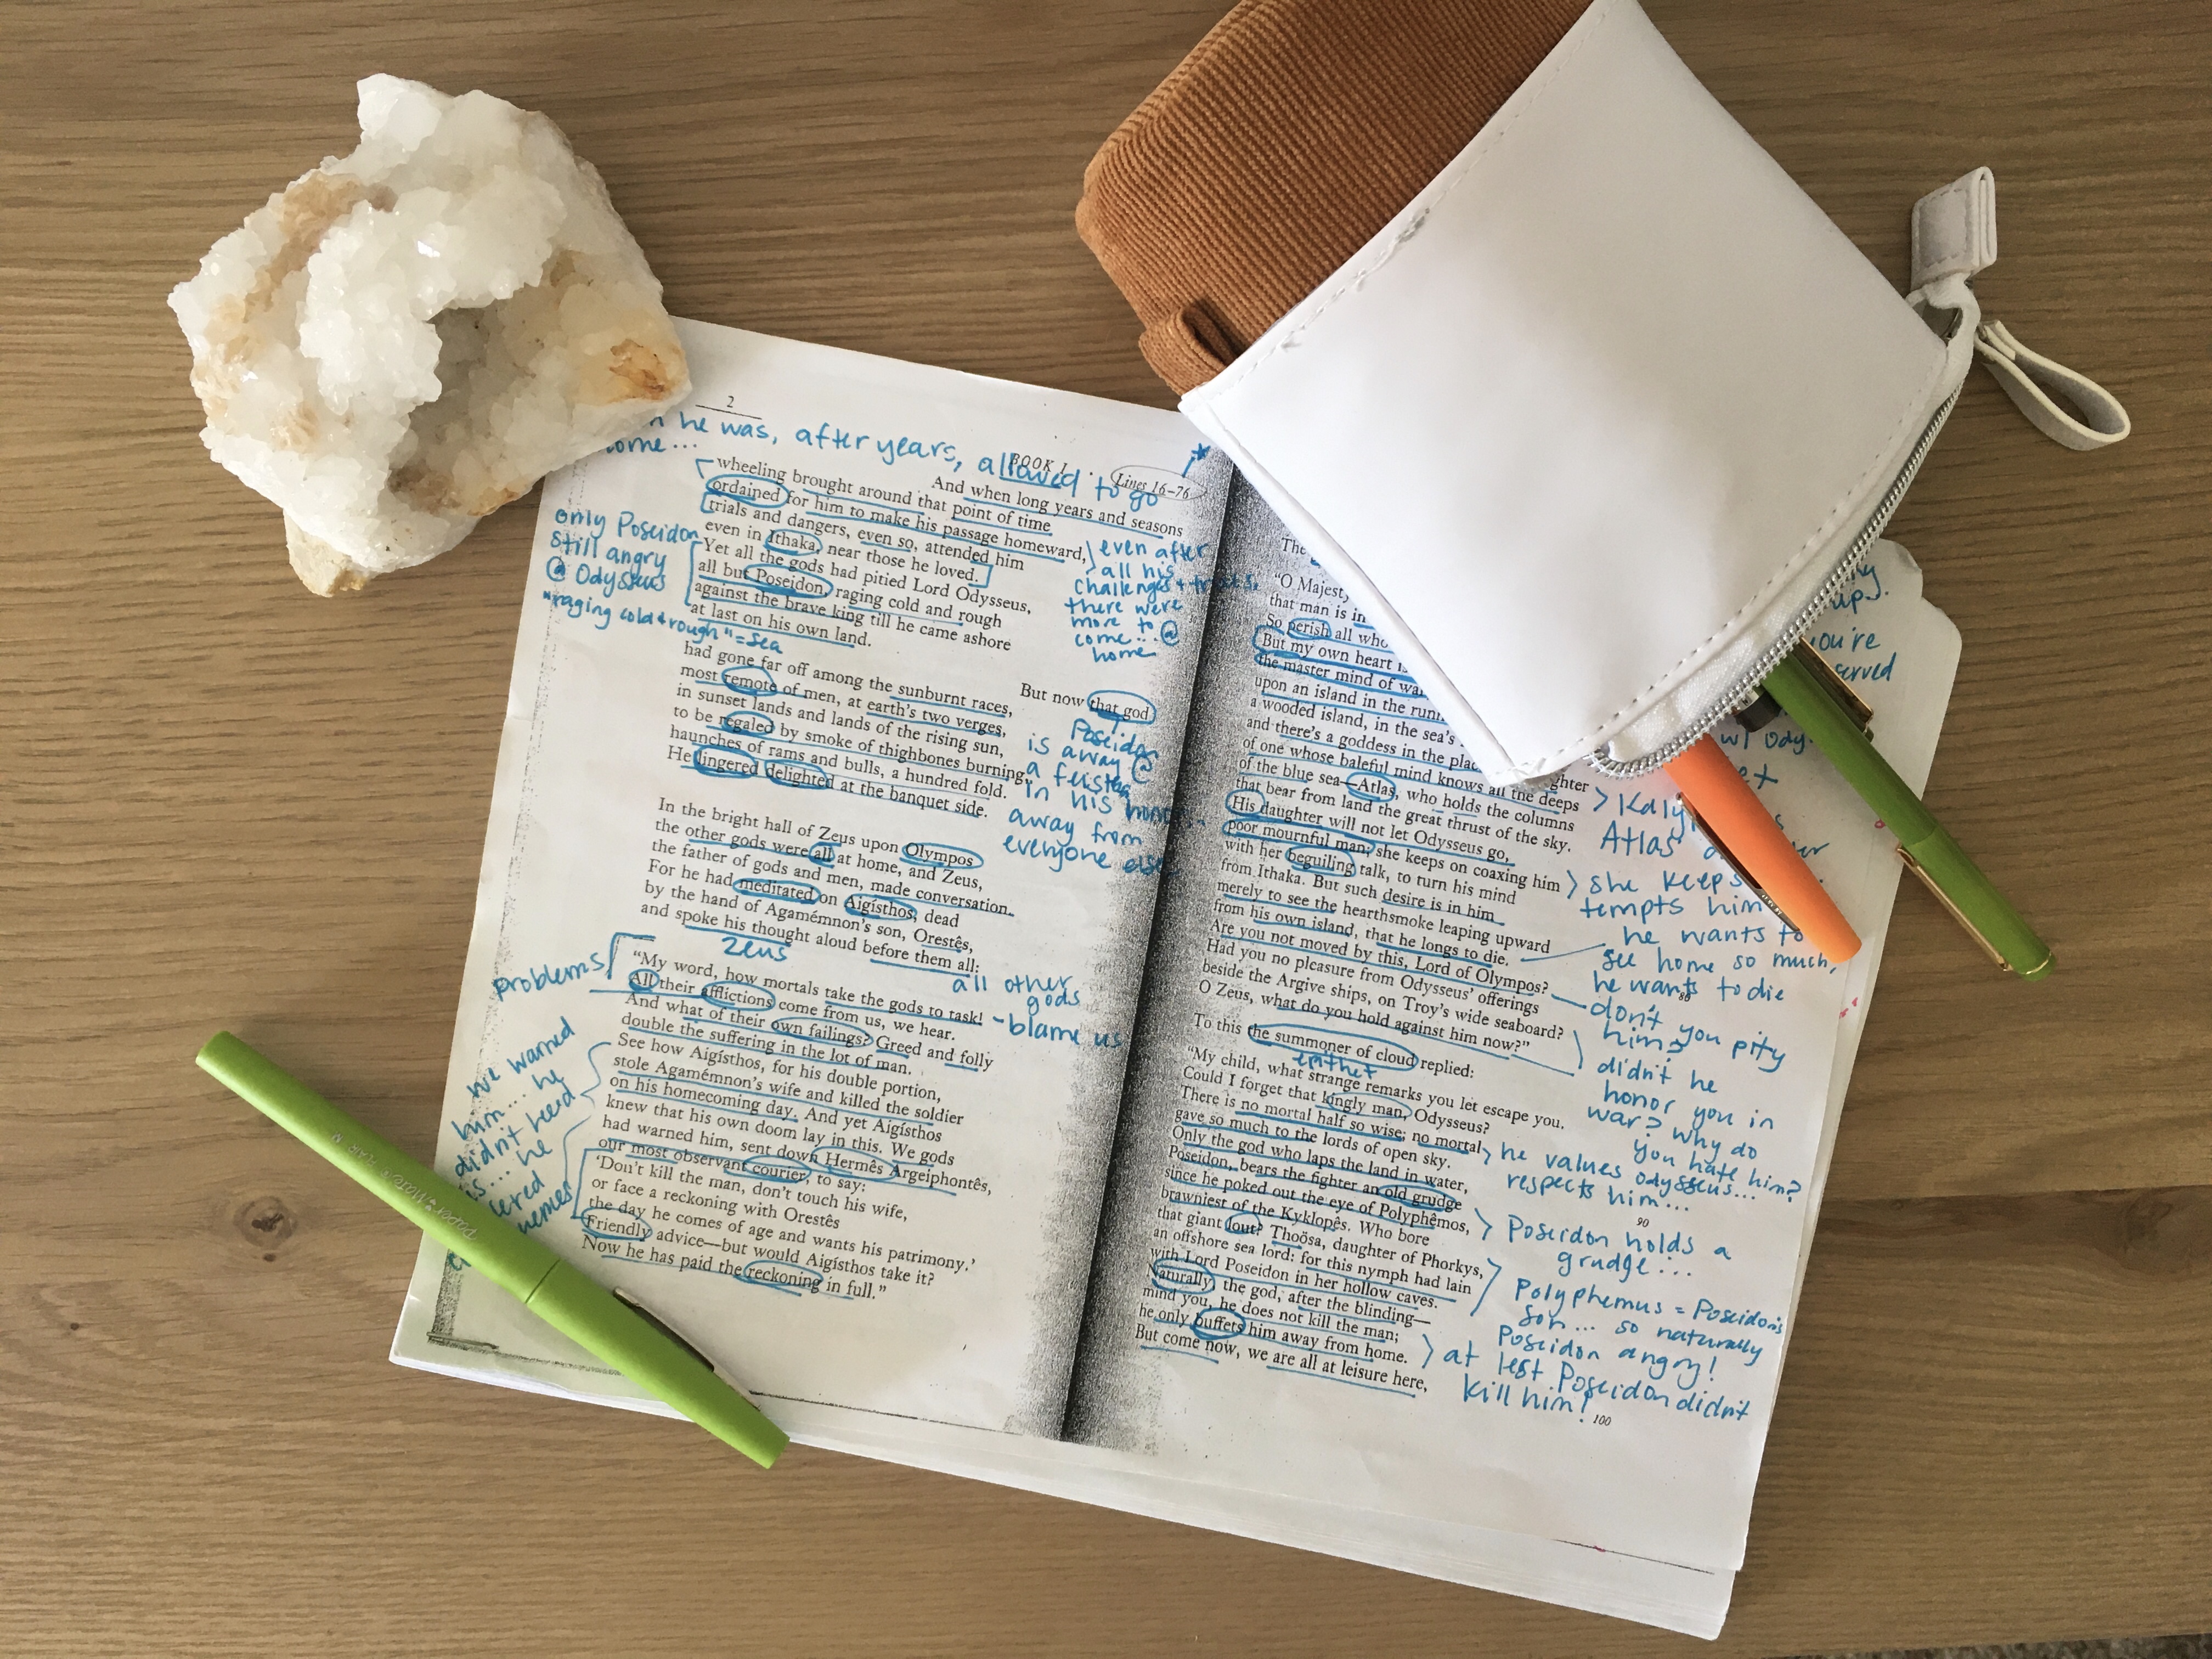 2
he was, after years, allowed to go
home...
BOOK I . Lines 16–76
And when long years and seasons
wheeling brought around that point of time
ordained for him to make his passage homeward,
trials and dangers, even so, attended him
even in Ithaka, near those he loved.
Yet all the gods had pitied Lord Odysseus,
all but Poseidon, raging cold and rough
against the brave king till he came ashore
at last on his own land.
only Poseidon
still angry
@ Odysseus
"raging cold + rough" = sea
even after
all his
challenges + trials,
there were
more to
come... @
home
But now that god
had gone far off among the sunburnt races,
most remote of men, at earth's two verges,
in sunset lands and lands of the rising sun,
to be regaled by smoke of thighbones burning,
haunches of rams and bulls, a hundred fold.
He lingered delighted at the banquet side.
Poseidon
is away @
a
in his
away from
everyone else
In the bright hall of Zeus upon Olympos
the other gods were all at home, and Zeus,
the father of gods and men, made conversation.
For he had meditated on Aigísthos, dead
by the hand of Agamémnon's son, Orestês,
and spoke his thought aloud before them all:
Zeus
all other
gods
"My word, how mortals take the gods to task!
All their afflictions come from us, we hear.
And what of their own failings? Greed and folly
double the suffering in the lot of man.
See how Aigísthos, for his double portion,
stole Agamémnon's wife and killed the soldier
on his homecoming day. And yet Aigísthos
knew that his own doom lay in this. We gods
had warned him, sent down Hermês Argeiphontês,
our most observant courier, to say:
'Don't kill the man, don't touch his wife,
or face a reckoning with Orestês
the day he comes of age and wants his patrimony.'
Friendly advice—but would Aigísthos take it?
Now he has paid the reckoning in full."
problems
-blame us
we warned
him... he
didn't heed
he
Paper Mate Flair
The
"O Majesty
that man is in
So perish all who
But my own heart is
the master mind of war
upon an island in the runn
a wooded island, in the sea's
and there's a goddess in the plac
of one whose baleful mind knows all the deeps
of the blue sea—Atlas, who holds the columns
that bear from land the great thrust of the sky.
His daughter will not let Odysseus go,
poor mournful man; she keeps on coaxing him
with her beguiling talk, to turn his mind
from Ithaka. But such desire is in him
merely to see the hearthsmoke leaping upward
from his own island, that he longs to die.
Are you not moved by this, Lord of Olympos?
Had you no pleasure from Odysseus' offerings
beside the Argive ships, on Troy's wide seaboard?
O Zeus, what do you hold against him now?"
To this the summoner of cloud replied:
epithet
"My child, what strange remarks you let escape you.
Could I forget that kingly man, Odysseus?
There is no mortal half so wise; no mortal
gave so much to the lords of open sky.
Only the god who laps the land in water,
Poseidon, bears the fighter an old grudge
since he poked out the eye of Polyphêmos,
brawniest of the Kyklopês. Who bore
that giant lout? Thoösa, daughter of Phorkys,
an offshore sea lord: for this nymph had lain
with Lord Poseidon in her hollow caves.
Naturally, the god, after the blinding—
mind you, he does not kill the man;
he only buffets him away from home.
But come now, we are all at leisure here,
ups.
you're
w/ Ody.
Atlas
she keeps
tempts him
he wants to
see home so much,
he wants to die
80
don't you pity
him?
didn't he
honor you in
war? why do
you hate him?
he values Odysseus...
respects him...
90
Poseidon holds a
grudge...
Polyphemus = Poseidon's
son... so naturally
Poseidon angry!
at lest Poseidon didn't
kill him!
100